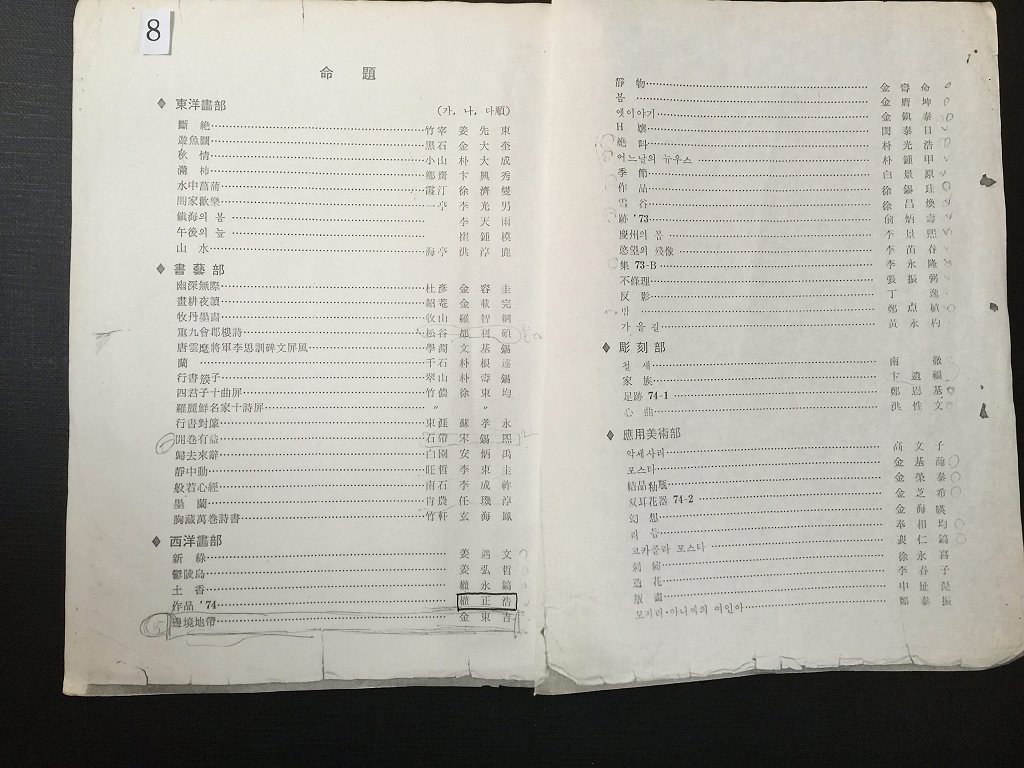 8
命題
◆ 東洋畵部 (가, 나, 다順)
斷絶 竹宰 姜先東
遊魚圖 黑石 金大奎
秋情 小山 朴大成
滿柿 鄕齋 卞興秀
水中菖蒲 霞汀 徐濟燮
閤家歡樂 一亭 李光男
鎭海의 봄 李天雨
午後의 늪 崔鍾模
山水 海亭 洪淳鹿
◆ 書藝部
幽深無際 杜彦 金容圭
晝耕夜讀 紹菴 金載完
牧丹墨畵 牧山 羅智綱
重九會郡樓詩 松谷
唐雲麾將軍李思訓碑文屛風 學澗 文基錫
蘭 千石 朴根
行書簇子 翠山 朴壽錫
四君子十曲屛 竹儂 徐東均
羅麗鮮名家十詩屛 〃 〃
行書對簾 東涯 蘇孝永
開卷有益 石帶 宋錫熙
歸去來辭 白園 安炳禹
靜中動 旺哲 李東圭
般若心經 南石 李成祚
墨蘭 肯農 任璣淳
胸藏萬卷詩書 竹軒 玄海鳳
◆ 西洋畵部
新綠 姜遇文
鬱陵島 姜弘哲
土香 權永鎬
作品 '74 權正浩
邊境地帶 金東吉
靜物 金壽命
봄 金膺坤
옛이야기 金鎭泰
H 孃 閔泰日
絶叫 朴光浩
어느날의 뉴우스 朴鍾甲
季節 白景原
作品 徐錫珪
雪谷 徐昌煥
跡 '73 兪炳壽
慶州의 봄 李景熙
慾望의 殘像 李苗春
集 73-B 李永隆
不條理 張振弼
反影 丁逸
밤 鄭点植
가을길 黃永杓
◆ 彫刻部
철새 南徹
家族 卞遺福
足跡 74-1 鄭恩基
心曲 洪性文
◆ 應用美術部
악세사리 高文子
포스타 金基
結晶釉甁 金榮泰
双耳花器 74-2 金芝希
幻想 金海暎
리듬 奉相均
코카콜라 포스타 裵仁鎬
刺繡 徐永喜
造花 李春子
版畵 申址湜
모지리·아니씨의 여인아 鄭泰振